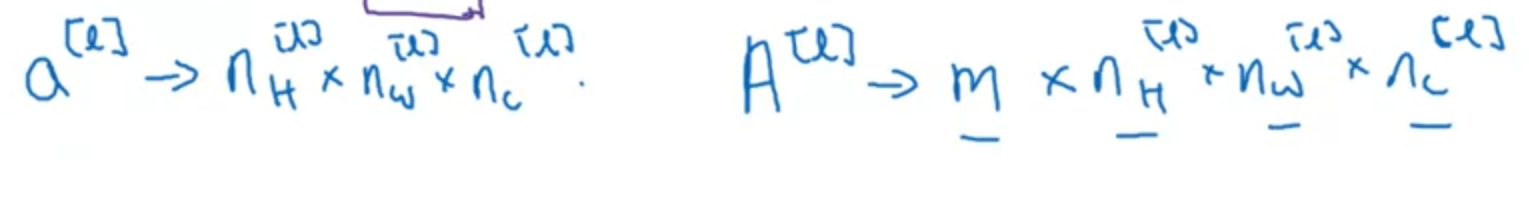 a^[l] → n_H^[l] × n_W^[l] × n_c^[l] . A^[l] → m × n_H^[l] × n_W^[l] × n_c^[l]